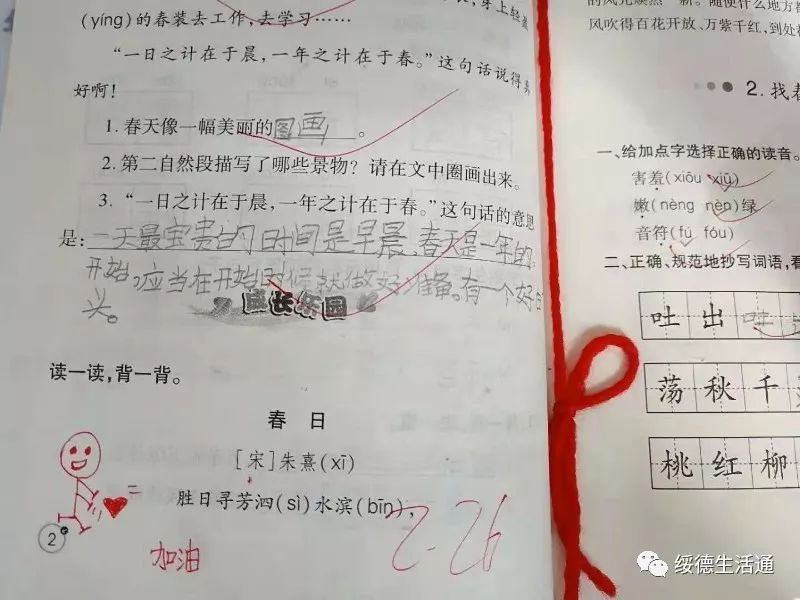 (yíng)的春装去工作,去学习……
“一日之计在于晨,一年之计在于春。”这句话说得
好啊!
1. 春天像一幅美丽的图画。
2. 第二自然段描写了哪些景物?请在文中圈画出来。
3. “一日之计在于晨,一年之计在于春。”这句话的意思
是:一天最宝贵的时间是早晨,春天是一年的
开始。应当在开始时候就做好准备。有一个好日
头。
成长乐园
读一读,背一背。
春 日
[宋]朱熹(xī)
胜日寻芳泗(sì)水滨(bīn),
2
加油
2-26
风吹得百花开放、万紫千红,到处
2. 找春
一、给加点字选择正确的读音。
害羞(xiōu xiū)
嫩(nèng nèn)绿
音符(fú fóu)
二、正确、规范地抄写词语,看
吐 出 吐
荡 秋 千
桃 红 柳
绥德生活通